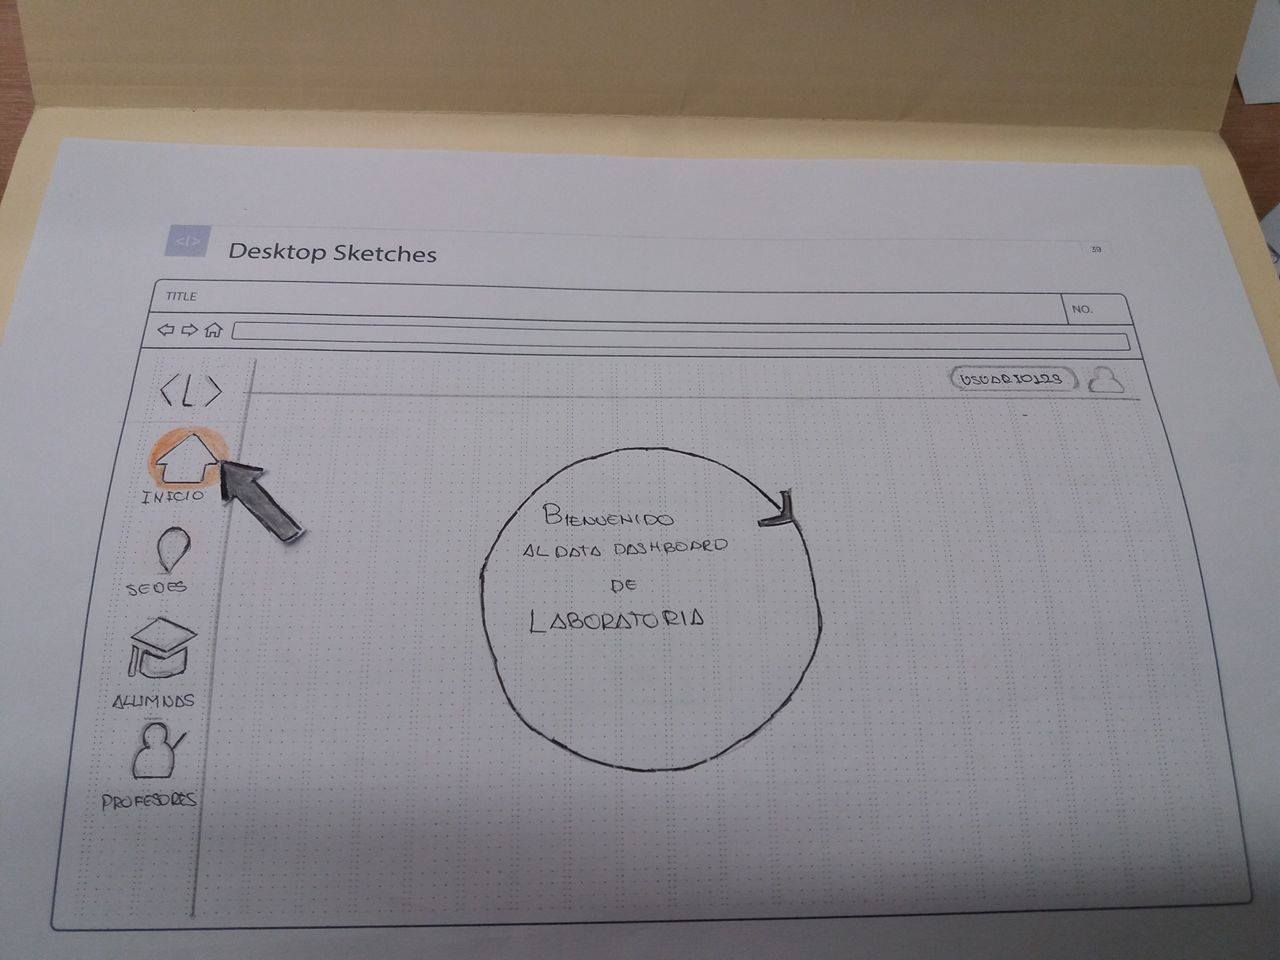 <L>
Desktop Sketches
39
TITLE
NO.
<L>
USUARIO123
INICIO
SEDES
ALUMNAS
PROFESORES
BIENVENIDO
AL DATA DASHBOARD
DE
LABORATORIA